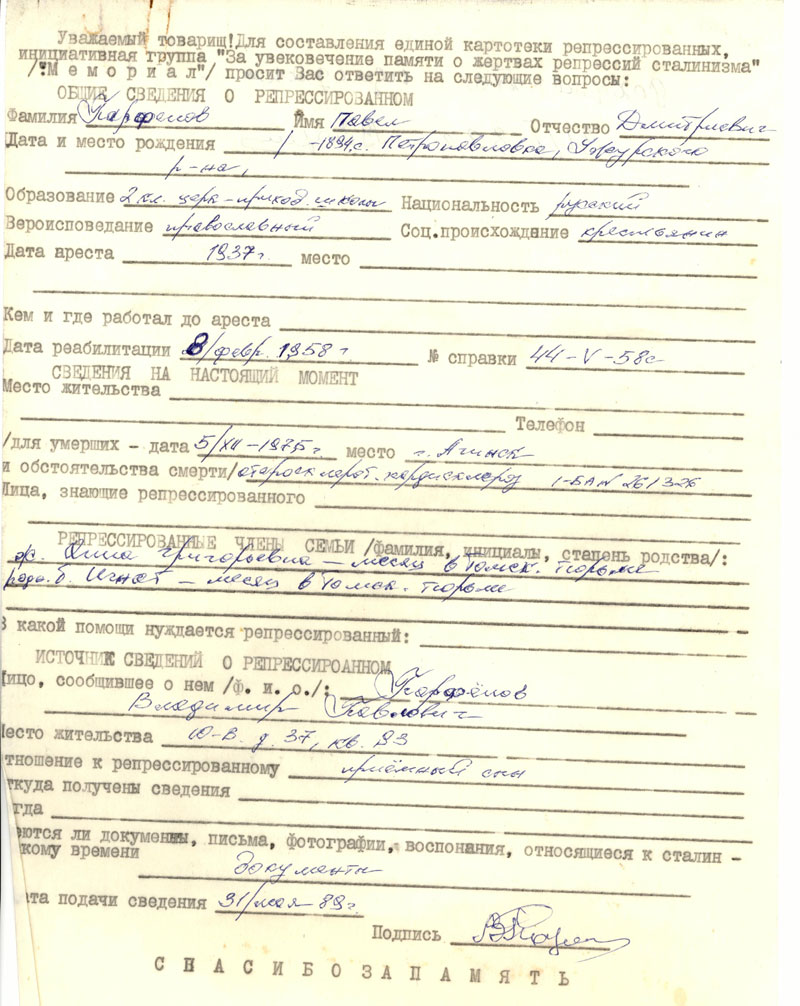 Уважаемый товарищ!Для составления единой картотеки репрессированных,
инициативная группа "За увековечение памяти о жертвах репрессий сталинизма"
/"М е м о р и а л"/ просит Вас ответить на следующие вопросы:
ОБЩИЕ СВЕДЕНИЯ О РЕПРЕССИРОВАННОМ
Фамилия Парфёнов Имя Павел Отчество Дмитриевич
Дата и место рождения 1894, с. Петропавловка, Ужурского
р-на,
Образование 2 кл. церк-приход. школы Национальность русский
Вероисповедание православный Соц.происхождение крестьянин
Дата ареста 1937г. место
Кем и где работал до ареста
Дата реабилитации 8/февр. 1958 г № справки 44-V-58с
СВЕДЕНИЯ НА НАСТОЯЩИЙ МОМЕНТ
Место жительства
Телефон
/для умерших - дата 5/XII-1975г. место г. Ачинск
и обстоятельства смерти/ кардиосклероз I-БА № 261326
Лица, знающие репрессированного
РЕПРЕССИРОВАННЫЕ ЧЛЕНЫ СЕМЬИ /фамилия, инициалы, степень родства/:
ж. Анна Григорьевна - месяц в Томск. тюрьме
родн. б. Игнат - месяц в Томск. тюрьме
В какой помощи нуждается репрессированный:
ИСТОЧНИК СВЕДЕНИЙ О РЕПРЕССИРОАННОМ
Лицо, сообщившее о нем /ф. и. о./: Парфёнов
Владимир Павлович
Место жительства Ю-В. д. 37, кв. 93
тношение к репрессированному приёмный сын
ткуда получены сведения
гда
еются ли документы, письма, фотографии, воспонания, относящиеся к сталин -
кому времени документы
ата подачи сведения 31/мая-89г.
Подпись
С П А С И Б О З А П А М Я Т Ь